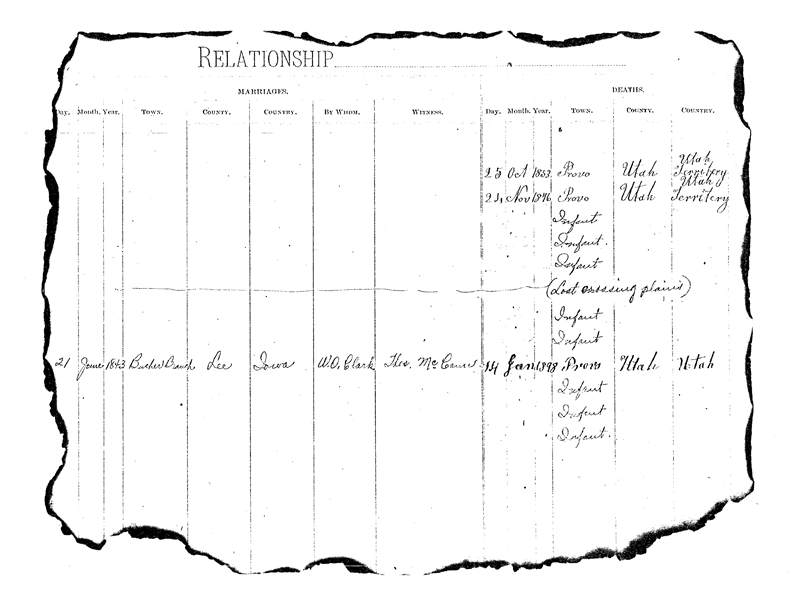 RELATIONSHIP
MARRIAGES. DEATHS.
Day. Month. Year. Town. County. Country. By Whom. Witness. Day. Month. Year. Town. County. Country.
25 Oct 1853 Provo Utah Utah Territery
24 Nov 1876 Provo Utah Utah Territery
Infant
Infant.
Infant
(Lost crossing plains)
Infant
Infant
21 June 1843 Branch Lee Iowa W.O. Clark Thos. 14 Jan 1898 Provo Utah Utah
Infant
Infant
Infant.